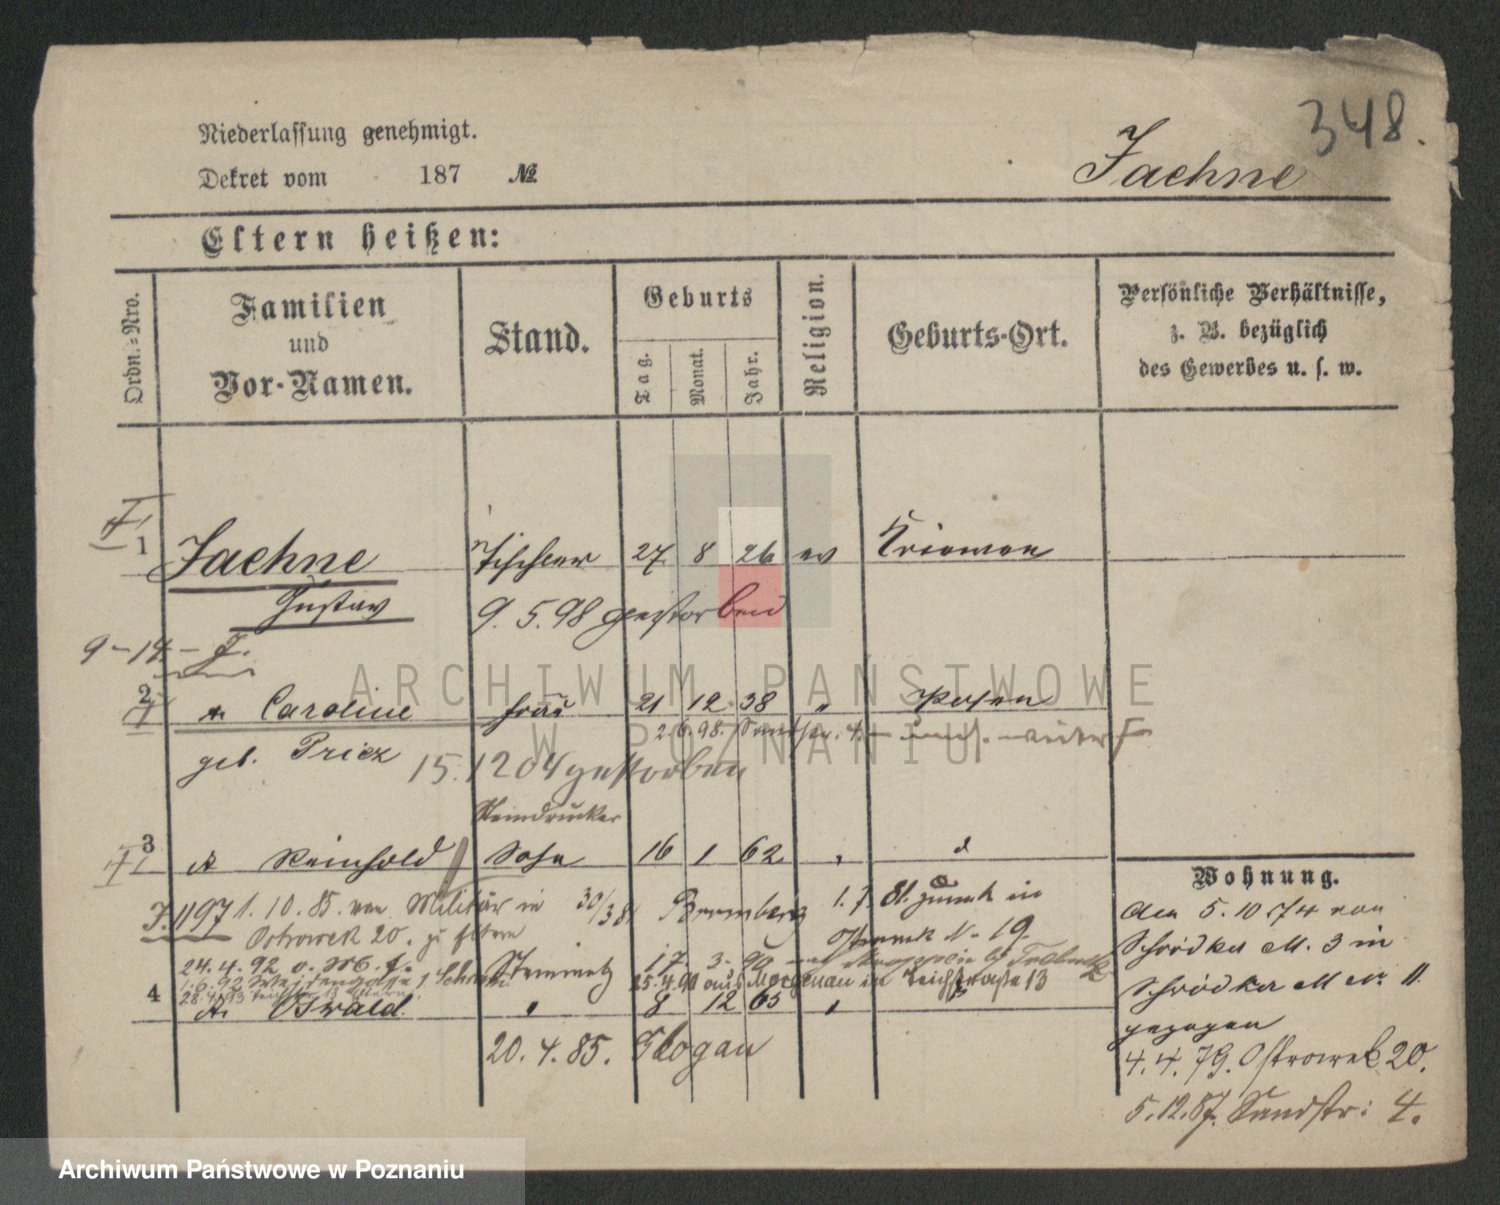 348.
Niederlassung genehmigt.
Dekret vom 187 №
Jaehne
Eltern heißen:
Ordn.-Nro.
Familien
und
Vor-Namen.
Stand.
Geburts
Tag.
Monat.
Jahr.
Religion.
Geburts-Ort.
Persönliche Verhältnisse,
z. B. bezüglich
des Gewerbes u. s. w.
1 Jaehne Tischler 27. 8 26 ev
Gustav 9. 5. 98 gestorben
9-14-
2 Caroline Frau 21 12. 38 " Posen
2. 6. 98. Sandstr. 4.
geb. Priez 15. 12 04 gestorben
Steindrucker
3 Reinhold Sohn 16 1 62
J. 1197 1. 10. 85. von Militär in 30/38 Bromberg 1. 7. 81. zurück in
Ostrowek 20. zu Eltern Ostrowek No 19
24. 4. 92 Steinmetz 17. 3. 90
25. 4. 91 aus Morgenau in Teichstraße 13
4 Oswald " 8 12 65 "
20. 4. 85. Glogau
Wohnung.
den 5. 10 74 von
Schrodka M. 3 in
Schrodka M No 11
gezogen
4. 4. 79. Ostrowek 20.
5. 12. 87. Sandstr: 4.
ARCHIWUM PAŃSTWOWE
W POZNANIU
Archiwum Państwowe w Poznaniu